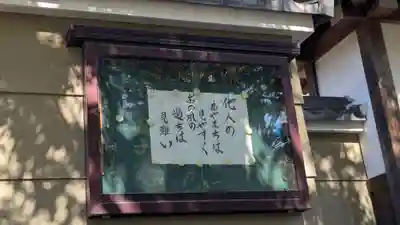 他人の
あやまちは
見やすく
あの風の
過ちは
見難い